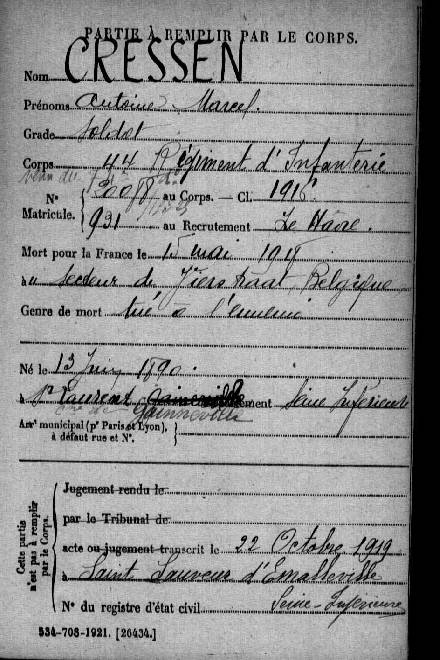 PARTIE À REMPLIR PAR LE CORPS.
Nom CRESSEN
Prénoms Antoine Marcel.
Grade Soldat
Corps 44 Régiment d'Infanterie
N° au Corps. — Cl. 1916
Matricule. 931 au Recrutement Le Havre.
Mort pour la France le 15 mai 1918
à au secteur de Vierstraat, Belgique
Genre de mort tué à l'ennemi
Né le 13 1890.
à St Laurent Seine Inférieure
Gainneville
Arrt municipal (pr Paris et Lyon), à défaut rue et N°.
Cette partie n'est pas à remplir par le Corps.
Jugement rendu le
par le Tribunal de
acte ou jugement transcrit le 22 Octobre 1919
à Saint Sauveur d'Emalleville
N° du registre d'état civil Seine-Inférieure
534-708-1921. [26434.]